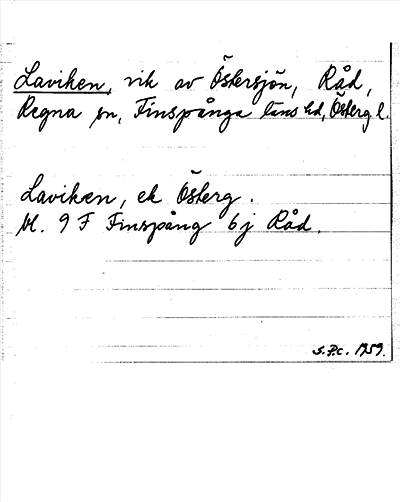 Laviken, vik av Östersjön, Råd,
Regna sn, Finspånga läns hd, Österg l.
Laviken, ek Österg.
bl. 9 F Finspång 6j Råd.
S.P.c. 1959.